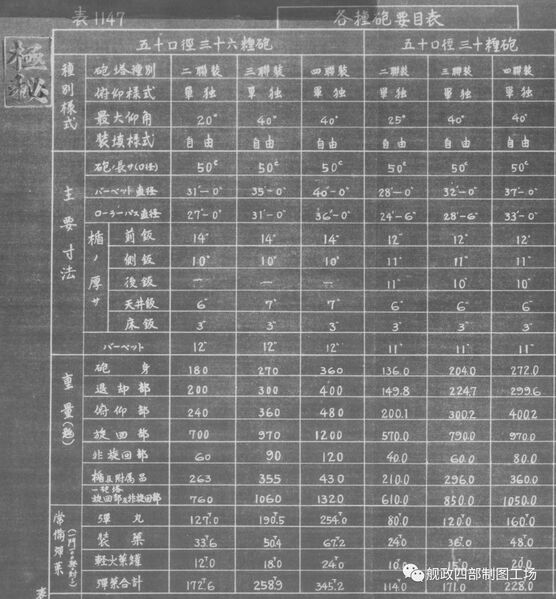 表1147
各種砲要目表
極秘
五十口徑三十六糎砲 五十口徑三十糎砲
種別様式 砲塔種別 二聯裝 三聯裝 四聯裝 二聯裝 三聯裝 四聯裝
俯仰様式 單独 單独 單独 單独 單独 單独
最大仰角 20° 40° 40° 25° 40° 40°
裝填様式 自由 自由 自由 自由 自由 自由
主要寸法 砲ノ長サ(口徑) 50c 50c 50c 50c 50c 50c
バーベット直徑 31'-0" 35'-0" 40'-0" 28'-0" 32'-0" 37'-0"
ローラーパス直徑 27'-0" 31'-0" 36'-0" 24'-6" 28'-6" 33'-0"
楯ノ厚サ 前鈑 14" 14" 14" 12" 12" 12"
側鈑 10" 10" 10" 11" 11" 11"
後鈑 — — — 11" 10" 10"
天井鈑 6" 7" 7" 6" 6" 6"
床鈑 3" 3" 3" 3" 3" 3"
バーベット 12" 12" 12" 11" 11" 11"
重量(瓲) 砲身 180 270 360 136.0 204.0 272.0
退却部 200 300 400 149.8 224.7 299.6
俯仰部 240 360 480 200.1 300.2 400.2
旋回部 700 970 1200 570.0 790.0 970.0
非旋回部 60 90 120 40.0 60.0 80.0
楯及附属品 263 355 430 210.0 296.0 360.0
一砲塔旋回部及非旋回部 760 1060 1320 610.0 850.0 1050.0
常備彈薬 彈丸 127.0T 190.5T 254.0T 80.0T 120.0T 160.0T
裝薬 33.6 50.4 67.2 24.0 36.0 48.0
軽火薬罐 12.0 18.0 24.0 10.0 15.0 20.0
彈薬合計 172.6 258.9 345.2 114.0 171.0 228.0
表
舰政四部制图工场